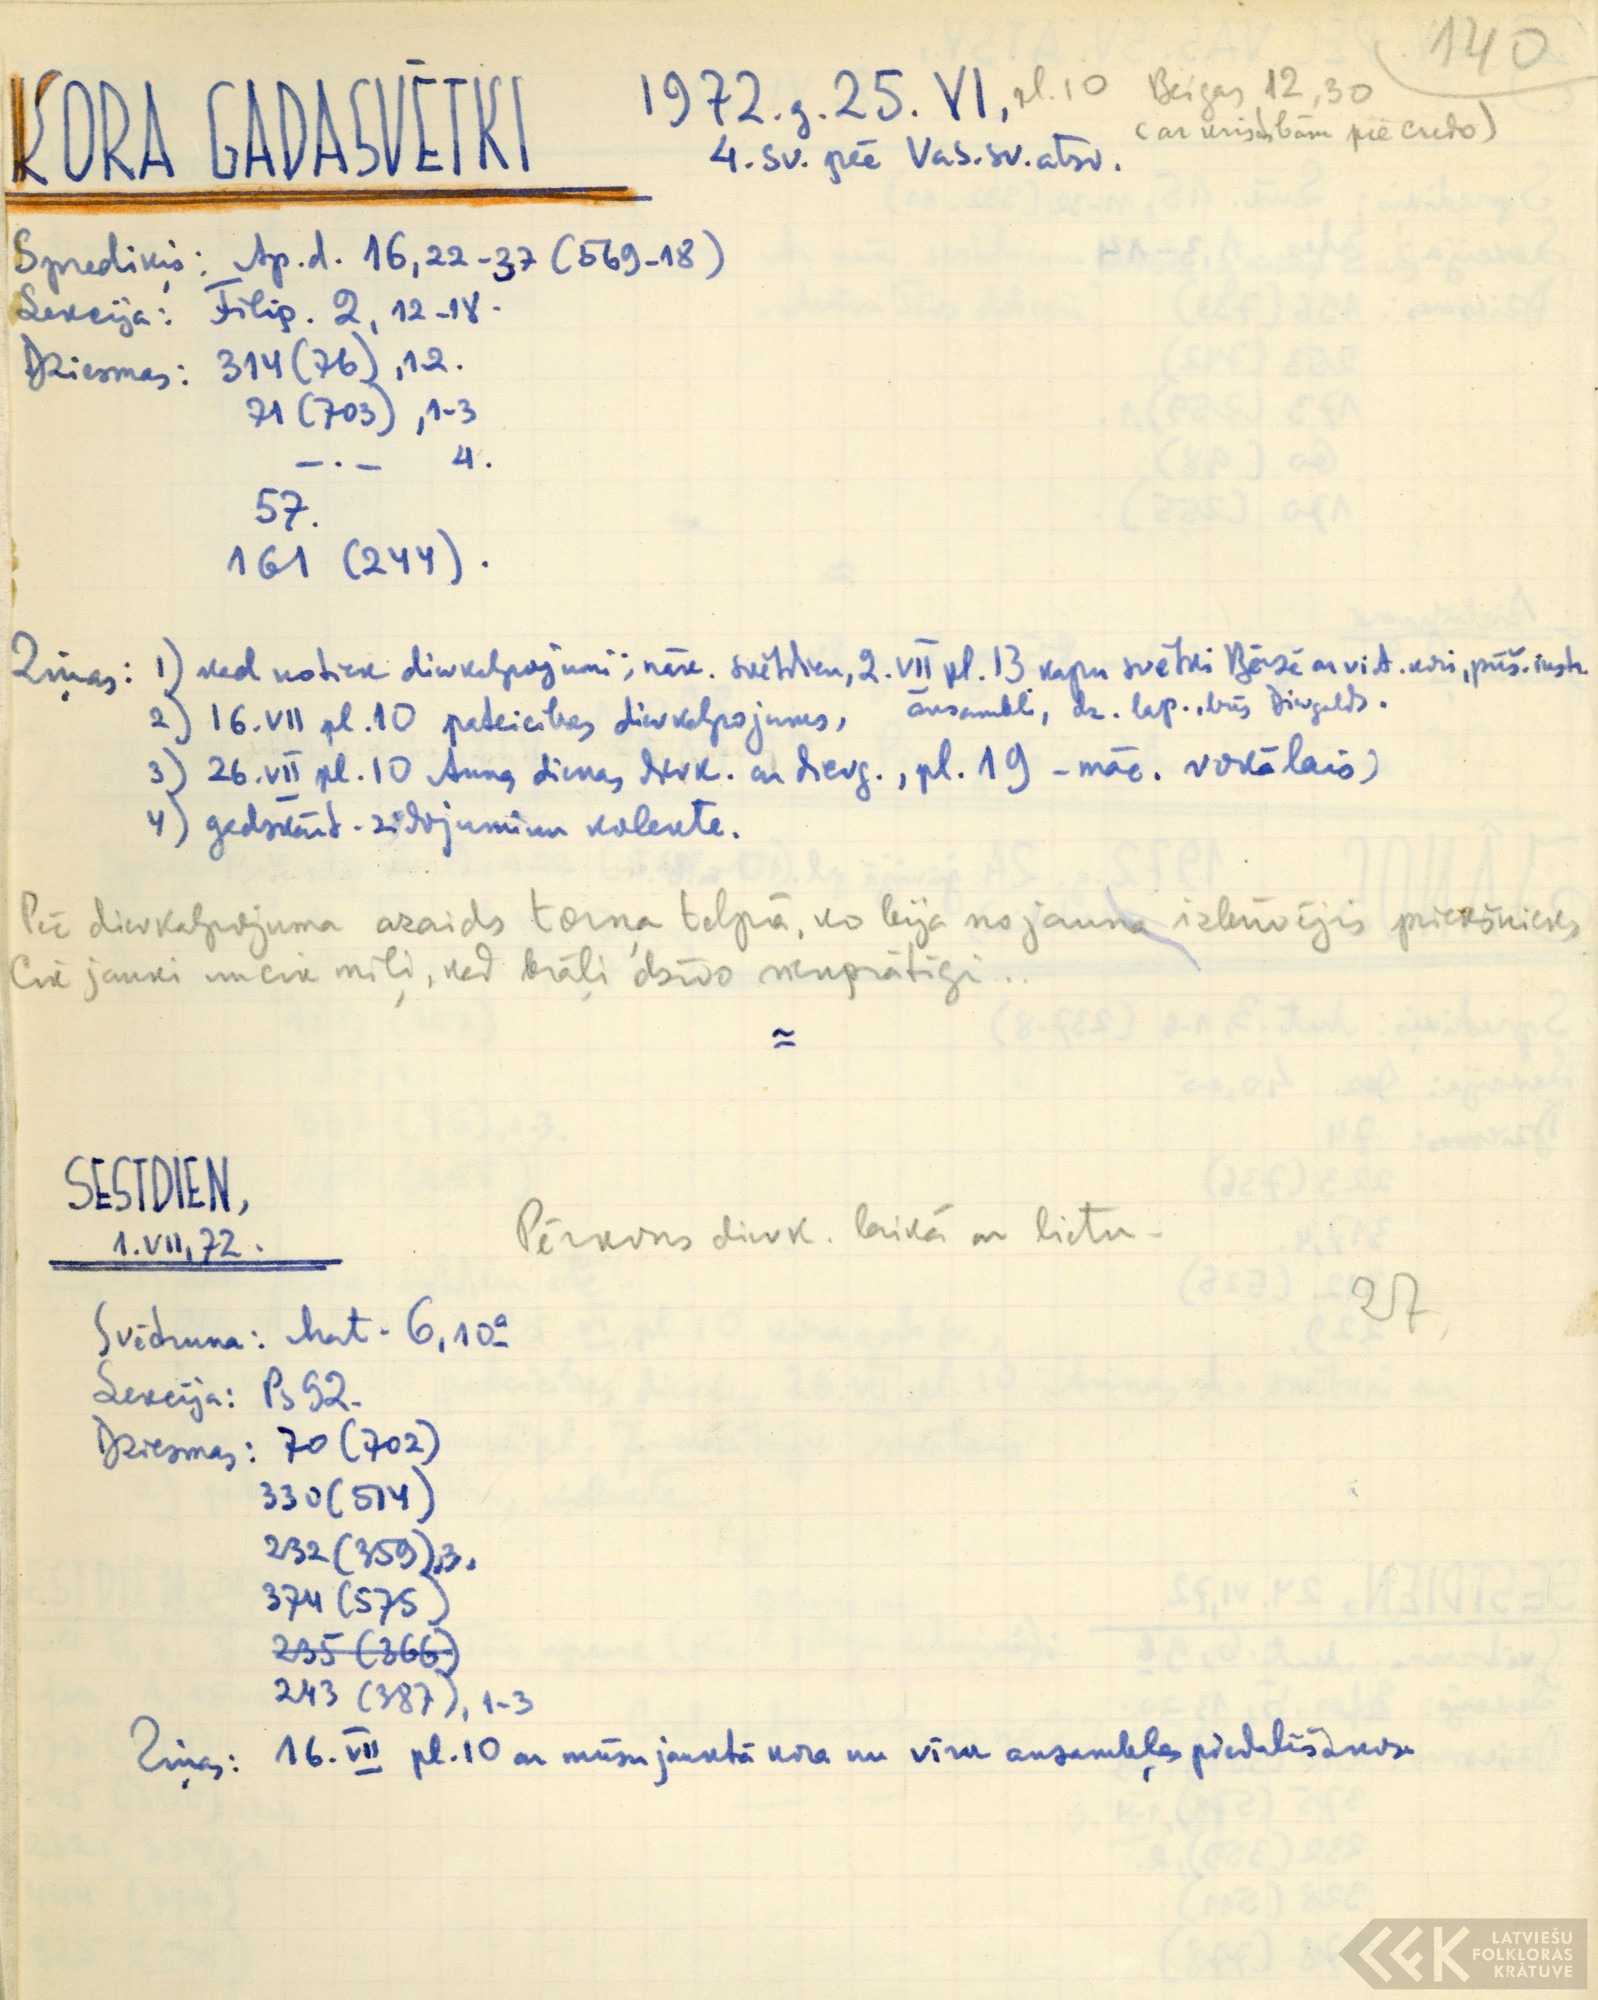 140
KORA GADASVĒTKI 1972.g. 25. VI, pl. 10 Beigas 12,30
(ar kristībām pēc credo)
4. sv. pēc Vas.sv.atsv.
Sprediķis: Ap.d. 16,22-37 (569-18)
Lekcija: Filip. 2, 12-18.
Dziesmas: 314(76), 1-2.
71(703), 1-3
—.— 4.
57.
161 (244).
Ziņas: 1) kad notiek dievkalpojumi; nāk. svētdien, 2. VII pl. 13 kapu svētki Bērzē ar viet. kori, pūš. instr.
ansambli, dz. lap., būs Dievgalds.
2) 16. VII pl. 10 pateicības dievkalpojums,
3) 26. VII pl. 10 Annas dienas dievk. ar dievg., pl. 19 - māc. vokālais)
4) gadskārt. ziedojumiem kolekte.
Pēc dievkalpojuma azaids torņa telpā, ko bija no jauna izbūvējis priekšnieks
Cik jauki un cik mīļi, kad brāļi dzīvo vienprātīgi...
≈
SESTDIEN,
1. VII, 72.
Pērkons dievk. laikā ar lietu -
27
Svētruna: Mat. 6, 10a
Lekcija: Ps 92.
Dziesmas: 70 (702)
330 (514)
232 (359), 3.
374 (575)
235 (366)
243 (387), 1-3
Ziņas: 16. VII pl. 10 ar mūsu jauktā kora un vīru ansambļa piedalīšanos
LATVIEŠU
FOLKLORAS
KRĀTUVE